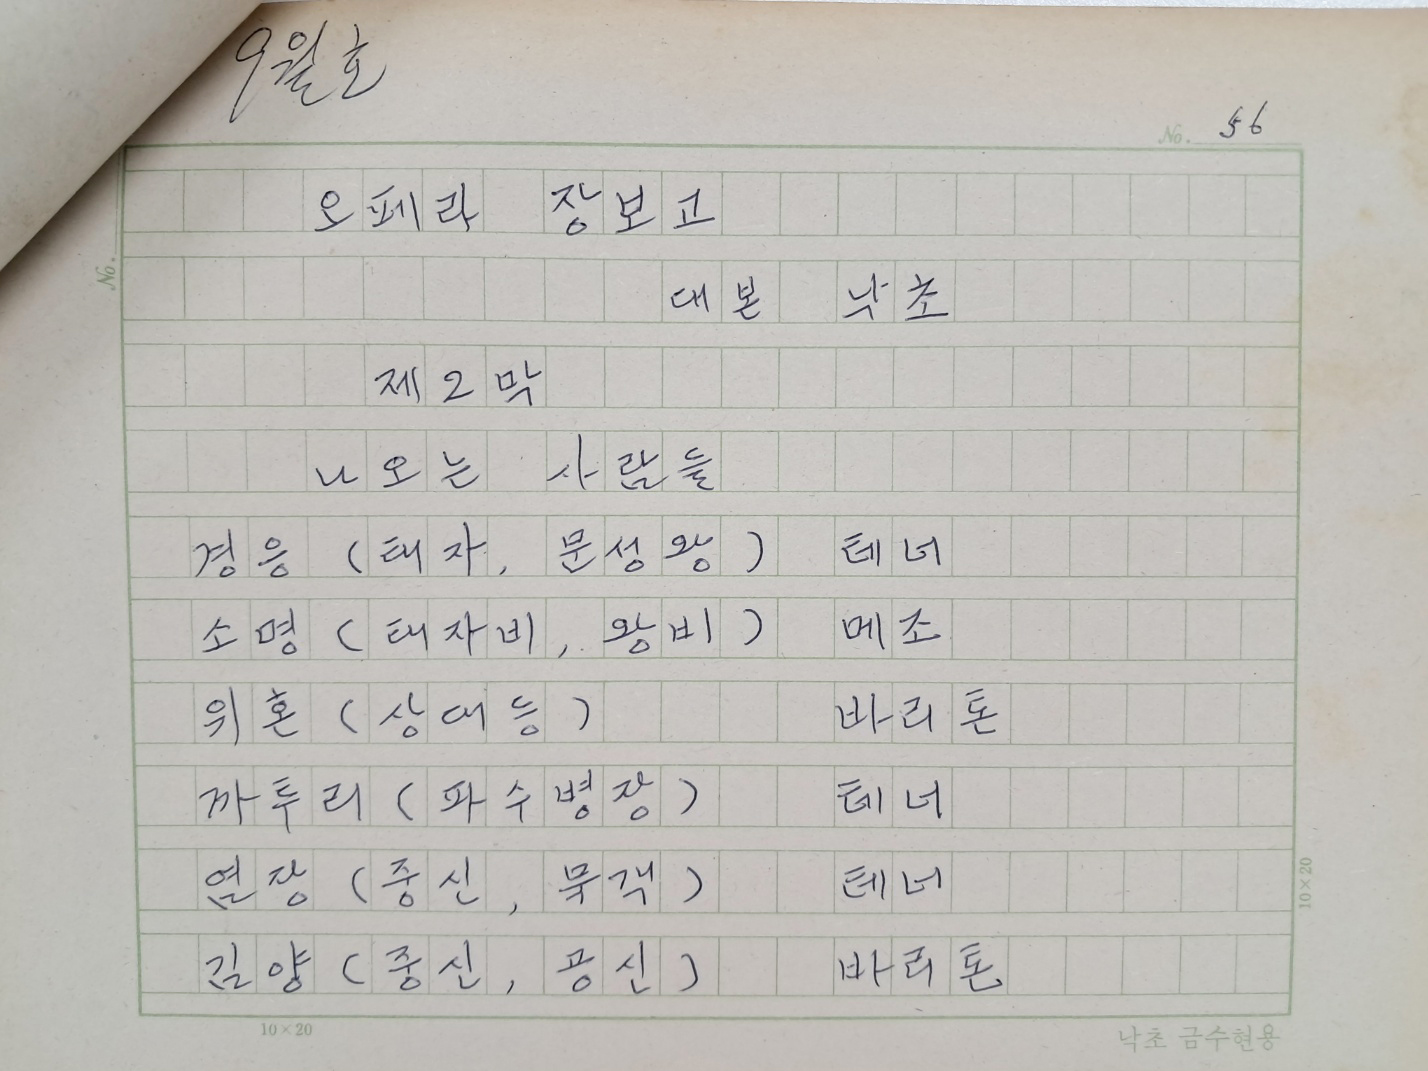 9월호
No. 56
오페라 장보고
대본 낙초
No.
제2막
나오는 사람들
경응 (태자, 문성왕) 테너
소명 (태자비, 왕비) 메조
위흔 (상대등) 바리톤
까투리 (파수병장) 테너
염장 (중신, 묵객) 테너
김양 (중신, 공신) 바리톤
10×20
10×20
낙초 금수현용